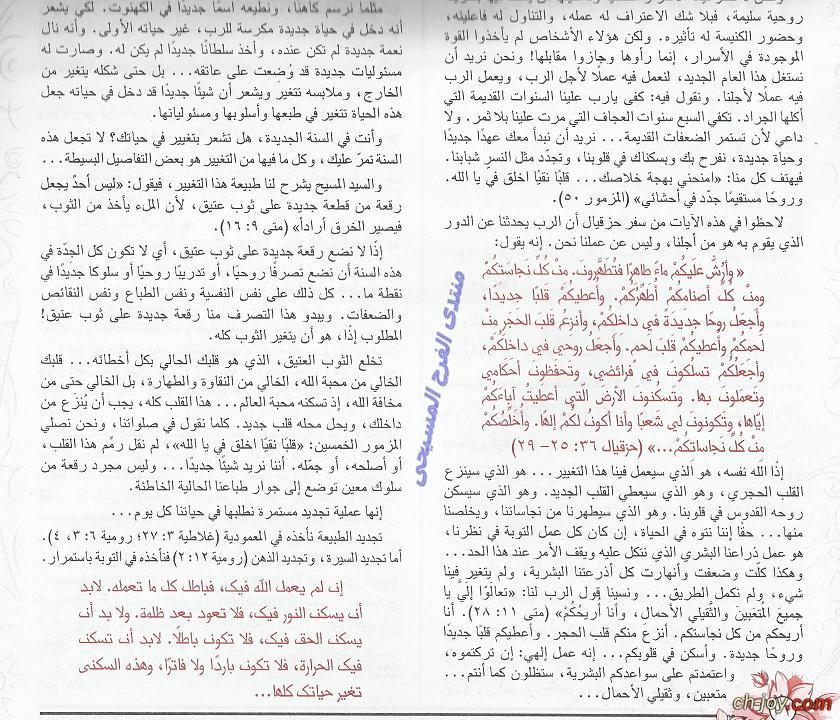 روحية سليمة، فبلا شك الاعتراف له عمله، والتناول له فاعليته،
وحضور الكنيسة له تأثيره. ولكن هؤلاء الأشخاص لم يأخذوا القوة
الموجودة في الأسرار، إنما رأوها وجازوا مقابلها! ونحن نريد أن
نستغل هذا العام الجديد، لنعمل فيه عملًا لأجل الرب، ويعمل الرب
فيه عملًا لأجلنا. ونقول فيه: كفى يارب علينا السنوات القديمة التي
أكلها الجراد. تكفي السبع سنوات العجاف التي مرت علينا بلا ثمر. ولا
داعي لأن تستمر الضعفات القديمة... نريد أن نبدأ معك عهدًا جديدًا
وحياة جديدة، نفرح بك وبسكناك في قلوبنا، وتجدّد مثل النسر شبابنا.
فيهتف كل منا: «امنحني بهجة خلاصك... قلبًا نقيًا اخلق في يا الله.
وروحًا مستقيمًا جدّد في أحشائي» (المزمور ٥٠).
لاحظوا في هذه الآيات من سفر حزقيال أن الرب يحدثنا عن الدور
الذي يقوم به هو من أجلنا، وليس عن عملنا نحن. إنه يقول:
« وأَرُشُّ عَلَيكُمْ ماءً طاهِرًا فتُطَهَّرُونَ. مِنْ كُلِّ نَجاسَتِكُمْ
ومِنْ كُلِّ أصنامِكُمْ أُطَهِّرُكُمْ. وأُعطيكُمْ قَلبًا جديدًا،
وأجعَلُ روحًا جَديدَةً في داخلِكُمْ، وأنزِعُ قَلبَ الحَجَرِ مِنْ
لحمِكُمْ وأُعطيكُمْ قَلبَ لحمٍ. وأجعَلُ روحي في داخلِكُمْ،
وأجعَلُكُمْ تسلُكونَ في فرائضي، وتحفَظونَ أحكامي
وتعمَلونَ بها. وتسكُنونَ الأرضَ الّتي أعطَيتُ آباءَكُمْ
إيّاها، وتكونونَ لي شَعبًا وأنا أكونُ لكُمْ إلهًا. وأُخَلِّصُكُمْ
مِنْ كُلِّ نَجاساتِكُمْ...» (حزقيال ٣٦: ٢٥- ٢٩)
إذًا الله نفسه، هو الذي سيعمل فينا هذا التغيير... هو الذي سينزع
القلب الحجري، وهو الذي سيعطي القلب الجديد. وهو الذي سيسكن
روحه القدوس في قلوبنا. وهو الذي سيطهرنا من نجاساتنا، ويخلصنا
منها... حقًا إننا نتوه في الحياة، إن كان كل عمل التوبة في نظرنا،
هو عمل ذراعنا البشري الذي نتكل عليه ويقف الأمر عند هذا الحد...
وهكذا كلّت وضعفت وأنهارت كل أذرعتنا البشرية، ولم يتغير فينا
شيء، ولم نكمل الطريق... ونسينا قول الرب لنا: «تعالَوْا إلَيَّ يا
جميعَ المُتعَبينَ والثَّقيلي الأحمالِ، وأنا أُريحُكُمْ» (متى ١١: ٢٨). أنا
أريحكم من كل نجاستكم. أنزع منكم قلب الحجر. وأعطيكم قلبًا جديدًا
وروحًا جديدة. وأسكن في قلوبكم... إنه عمل إلهي: إن تركتموه،
واعتمدتم على سواعدكم البشرية، ستظلون كما أنتم...
متعبين، وثقيلي الأحمال...
مثلما نرسم كاهنًا، ونعطيه اسمًا جديدًا في الكهنوت. لكي يشعر
أنه دخل في حياة جديدة مكرسة للرب، غير حياته الأولى. وأنه نال
نعمة جديدة لم تكن عنده، وأخذ سلطانًا جديدًا لم يكن له. وصارت له
مسئوليات جديدة قد وُضِعت على عاتقه... بل حتى شكله يتغير من
الخارج، وملابسه تتغير ويشعر أن شيئًا جديدًا قد دخل في حياته جعل
هذه الحياة تتغير في طبعها وأسلوبها ومسئولياتها.
وأنت في السنة الجديدة، هل تشعر بتغيير في حياتك؟ لا تجعل هذه
السنة تمرّ عليك، وكل ما فيها من التغيير هو بعض التفاصيل البسيطة...
والسيد المسيح يشرح لنا طبيعة هذا التغيير، فيقول: «ليس أحدٌ يجعل
رقعة من قطعة جديدة على ثوب عتيق، لأن الملء يأخذ من الثوب،
فيصير الخرق أردأ» (متى ٩: ١٦).
إذًا لا نضع رقعة جديدة على ثوب عتيق، أي لا تكون كل الجِدّة في
هذه السنة أن نضع تصرفًا روحيًا، أو تدريبًا روحيًا أو سلوكًا جديدًا في
نقطة ما... كل ذلك على نفس النفسية ونفس الطباع ونفس النقائص
والضعفات. ويبدو هذا التصرف منا رقعة جديدة على ثوب عتيق!
المطلوب إذًا، هو أن يتغير الثوب كله.
تخلع الثوب العتيق، الذي هو قلبك الحالي بكل أخطائه... قلبك
الخالي من محبة الله، الخالي من النقاوة والطهارة، بل الخالي حتى من
مخافة الله، إذ تسكنه محبة العالم... هذا القلب كله، يجب أن يُنزَع من
داخلك، ويحل محله قلب جديد. كلما نقول في صلواتنا، ونحن نصلي
المزمور الخمسين: «قلبًا نقيًا اخلق في يا الله»، لم نقل رمِّم هذا القلب،
أو أصلحه، أو جمّله. أننا نريد شيئًا جديدًا... وليس مجرد رقعة من
سلوك معين توضع إلى جوار طباعنا الحالية الخاطئة.
إنها عملية تجديد مستمرة نطلبها في حياتنا كل يوم...
تجديد الطبيعة نأخذه في المعمودية (غلاطية ٣: ٢٧؛ رومية ٦: ٣، ٤).
أما تجديد السيرة، وتجديد الذهن (رومية ١٢: ٢) فنأخذه في التوبة باستمرار.
إن لم يعمل الله فيك، فباطل كل ما تعمله. لابد
أن يسكن النور فيك، فلا تعود بعد ظلمة. ولا بد أن
يسكن الحق فيك، فلا تكون باطلًا. لابد أن تسكن
فيك الحرارة، فلا تكون باردًا ولا فاترًا، وهذه السكنى
تغير حياتك كلها...
منتدى الفرح المسيحى
ch-joy.com